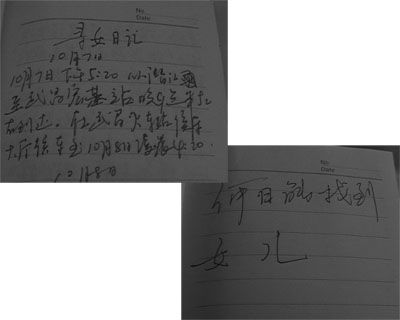 No.
Date
寻女日记
10月7日
10月7日下午5:20 从潜江
至武昌宏基站晚9点半
左右到达。在武昌火车站候车
大厅候车至10月8日凌晨4:20.
10月8日
No.
Date
何日能找到
女儿